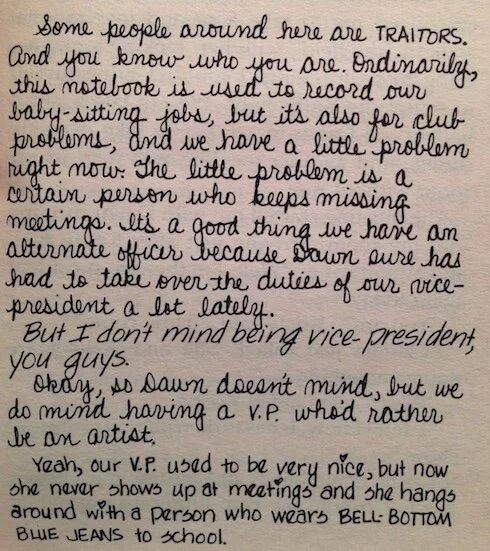 Some people around here are TRAITORS.
And you know who you are. Ordinarily,
this notebook is used to record our
baby-sitting jobs, but it's also for club
problems, and we have a little problem
right now. The little problem is a
certain person who keeps missing
meetings. It's a good thing we have an
alternate officer because Dawn sure has
had to take over the duties of our vice-
president a lot lately.
But I don't mind being vice-president,
you guys.
Okay, so Dawn doesn't mind, but we
do mind having a V.P. who'd rather
be an artist.
Yeah, our V.P. used to be very nice, but now
she never shows up at meetings and she hangs
around with a person who wears BELL-BOTTOM
BLUE JEANS to school.